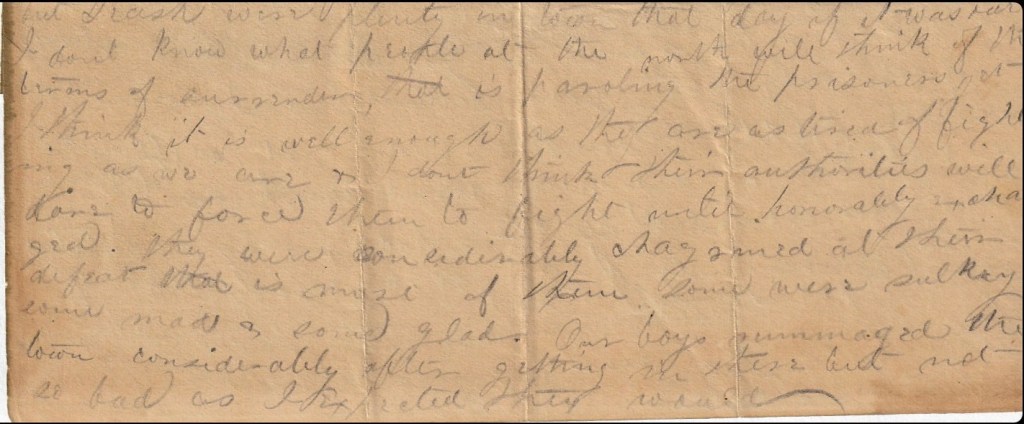 but trash were plenty in town that day if it was
I dont know what people at the north will think of the
terms of surrender, that is paroling the prisoners yet
I think it is well enough as they are as tired of fight
ing as we are & I dont think their authorities will
dare to force them to fight until honorably excha
ged. they were considerably chagrined at their
defeat that is most of them. some were sulkey
some mad & some glad. Our boys rummaged the
town considerably after getting in there but not
so bad as I Expected they would